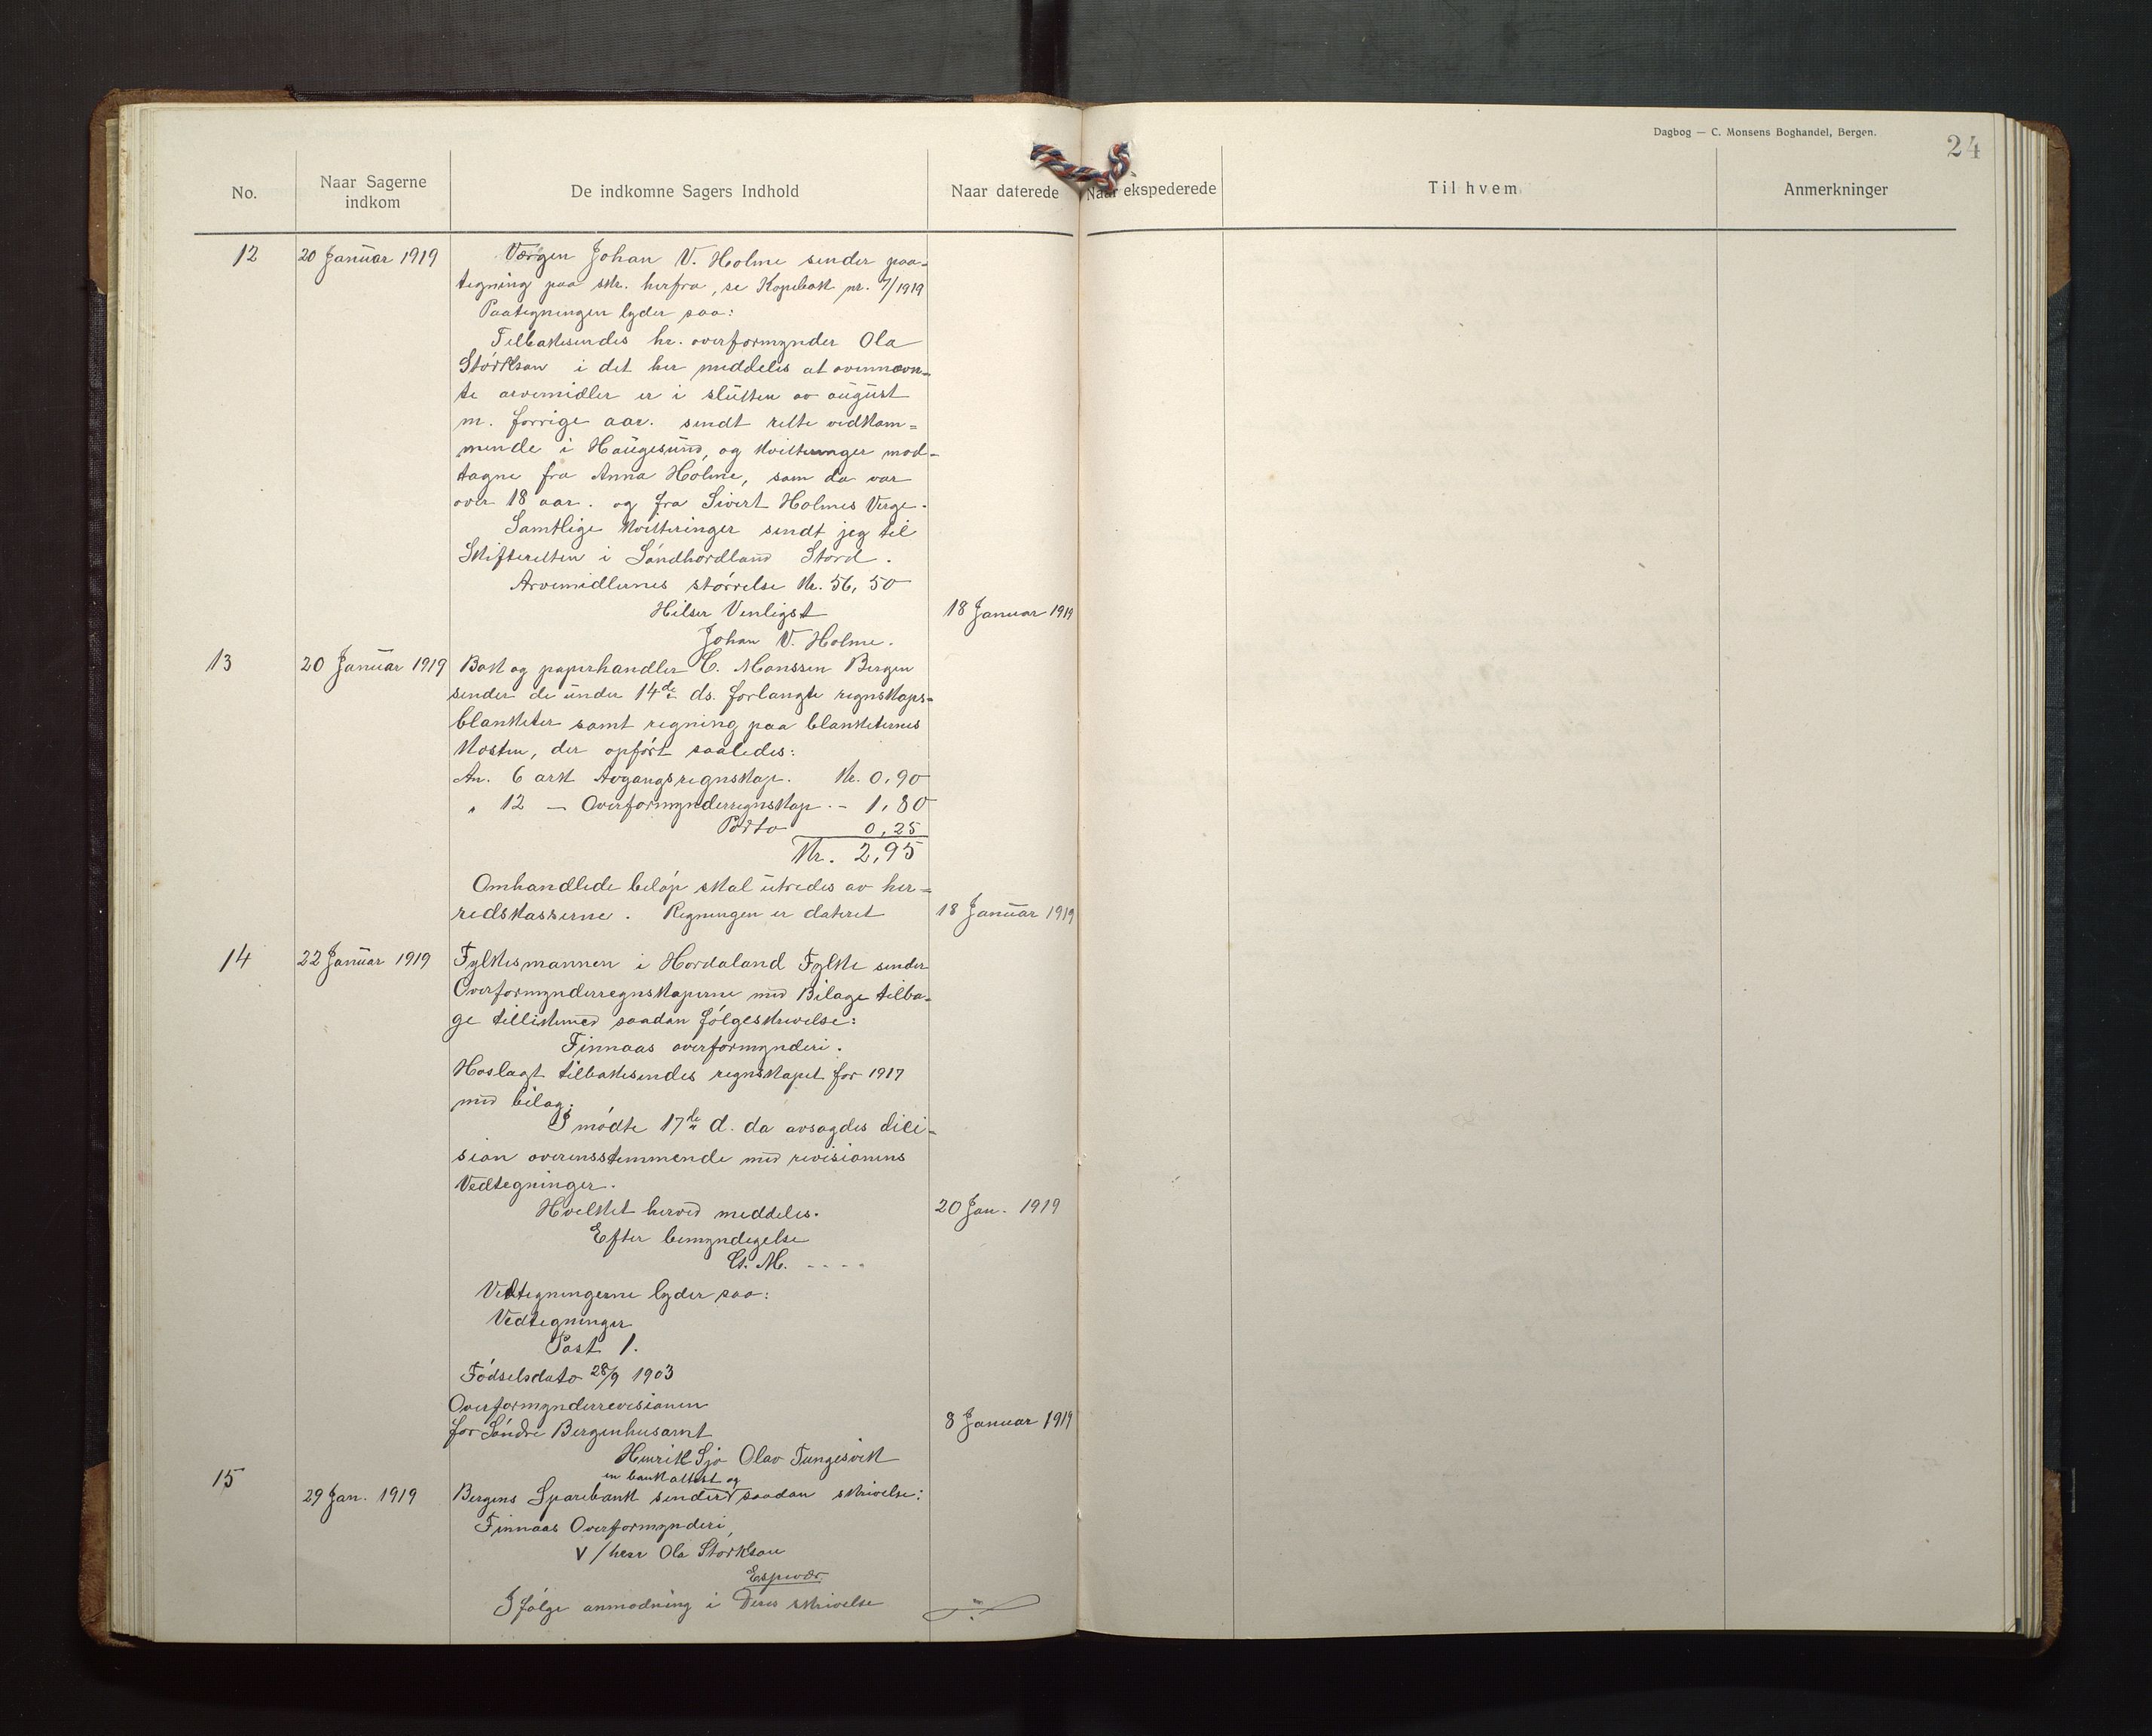 Dagbog — C. Monsens Boghandel, Bergen.
24
No.
Naar Sagerne indkom
De indkomne Sagers Indhold
Naar daterede
Naar ekspederede
Til hvem
Anmerkninger
12 20 Januar 1919 Værgen Johan V. Holme sender paa-
tegning paa skr. herfra, se Kopibok nr. 7/1919
Paategningen lyder saa:
Tilbakesendes hr. overformynder Ola
Størkson i det her meddeles at ovennævn-
te arvemidler er i slutten av august
m. forrige aar. sendt rette vedkom-
mende i Haugesund, og kvitteringer mod-
tagne fra Anna Holme, som da var
over 18 aar. og fra Sivert Holmes Verge.
Samtlige kvitteringer sendt jeg til
Skifteretten i Søndhordland Stord.
Arvemidlernes størrelse Kr. 56,50
Hilser Venligst 18 Januar 1919
Johan V. Holme.
13 20 Januar 1919 Bok og papirhandler C. Monssen Bergen
sender de under 14de ds. forlangte regnskaps-
blanketer samt regning paa blanketernes
kosten, der opført saaledes:
An. 6 ark Avgangsregnskap. Kr. 0,90
" 12 — Overformynderregnskap. - 1,80
Porto 0,25
Kr. 2,95
Omhandlede beløp skal utredes av her-
redskasserne. Regningen er dateret 18 Januar 1919
14 22 Januar 1919 Fylkesmannen i Hordaland Fylke sender
Overformynderregnskaperne med Bilage tilba-
ge tillikemed saadan følgeskrivelse:
Finnaas overformynderi.
Hoslagt tilbakesendes regnskapet for 1917
med bilag.
I møte 17de d. da avsagdes dici-
sion overensstemmende med revisionens
Vedtegninger.
Hvelket herved meddeles. 20 Jan. 1919
Efter bemyndegelse
M. - - - -
Vedtegningerne lyder saa:
Vedtegninger
Post 1.
Fødselsdato 28/9 1903
Overformynderrevisionen
for Søndre Bergenhusamt 8 Januar 1919
Henrik Sjo Olav Tungesvik
15
en bankattest og
29 Jan. 1919 Bergens Sparebank sender saadan skrivelse:
Finnaas Overformynderi,
V/herr Ola Størkson
Espevær.
I følge anmodning i Deres skrivelse